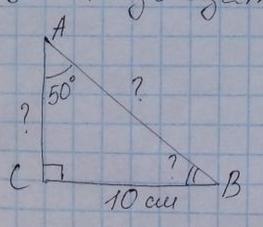 A
50°
?
?
?
C
B
10 см